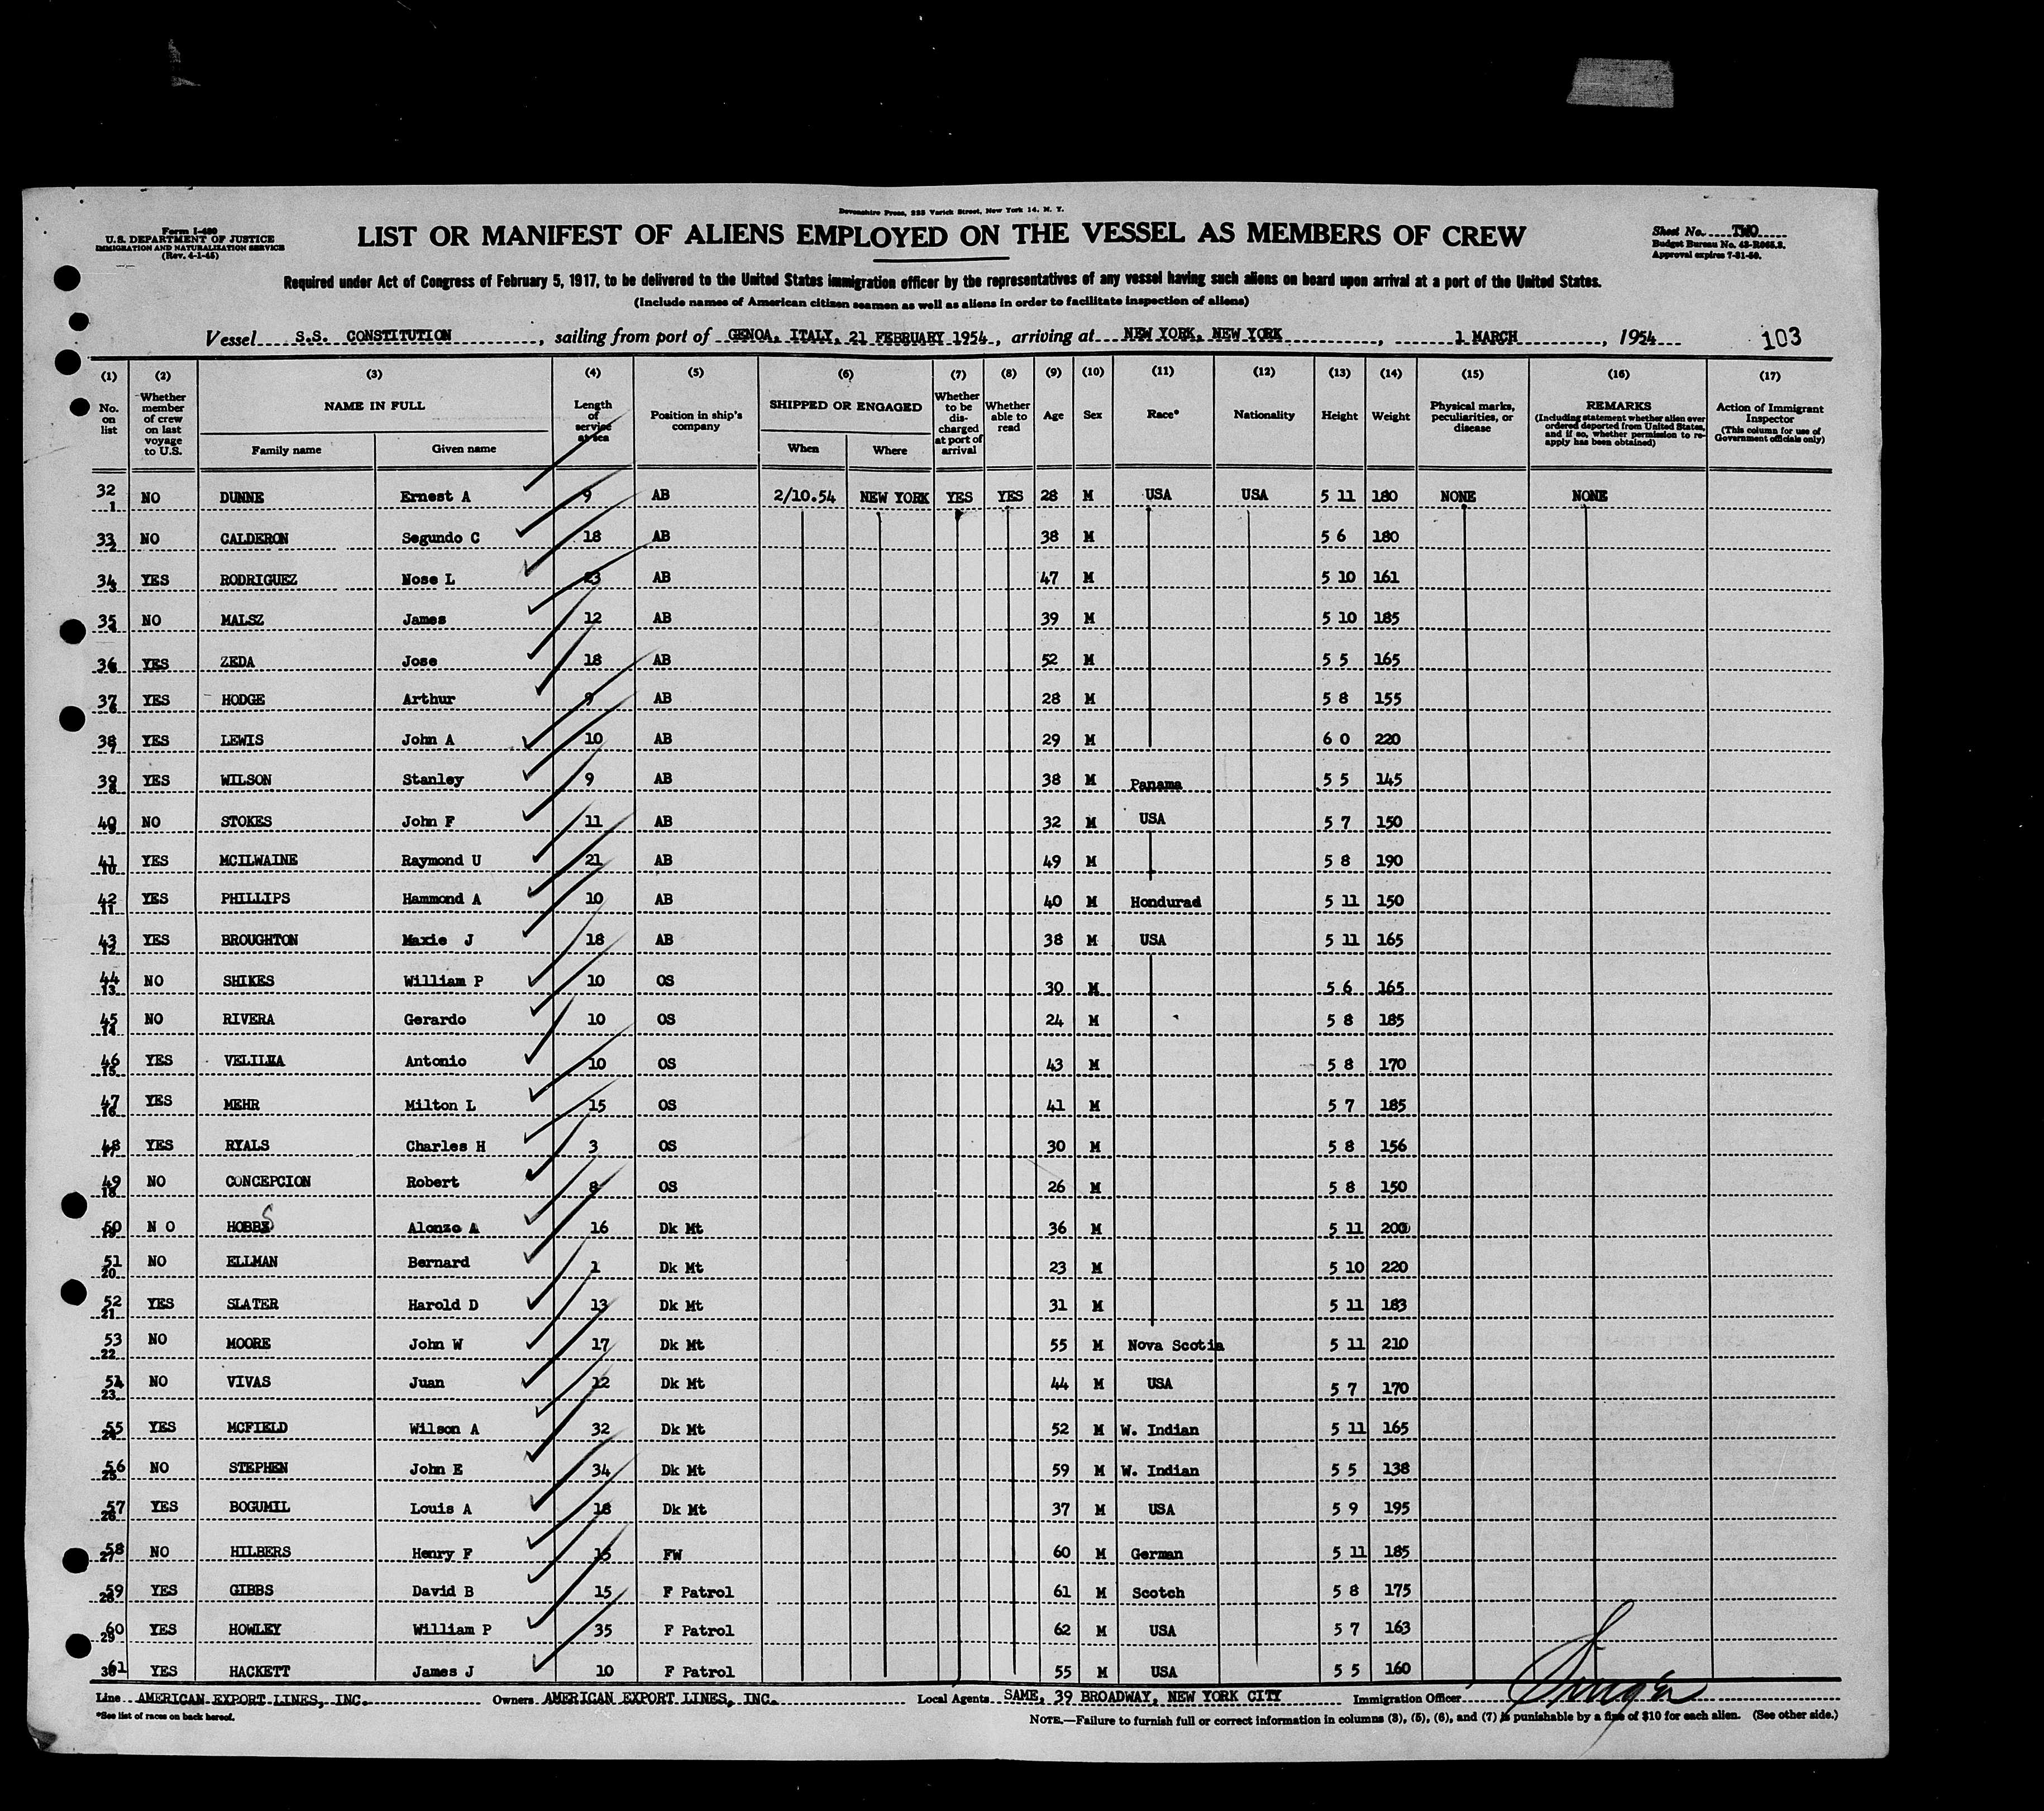 Devonshire Press, 225 Varick Street, New York 14, N. Y.
Form I-480
U.S. DEPARTMENT OF JUSTICE
IMMIGRATION AND NATURALIZATION SERVICE
(Rev. 4-1-45)
LIST OR MANIFEST OF ALIENS EMPLOYED ON THE VESSEL AS MEMBERS OF CREW
Sheet No. TWO
Budget Bureau No. 43-R065.2.
Approval expires 7-31-50.
Required under Act of Congress of February 5, 1917, to be delivered to the United States immigration officer by the representatives of any vessel having such aliens on board upon arrival at a port of the United States.
(Include names of American citizen seamen as well as aliens in order to facilitate inspection of aliens)
Vessel S.S. CONSTITUTION, sailing from port of GENOA, ITALY, 21 FEBRUARY 1954, arriving at NEW YORK, NEW YORK, 1 MARCH, 1954 103
(1) (2) (3) (4) (5) (6) (7) (8) (9) (10) (11) (12) (13) (14) (15) (16) (17)
No. on list
Whether member of crew on last voyage to U.S.
NAME IN FULL
Family name Given name
Length of service at sea
Position in ship's company
SHIPPED OR ENGAGED
When Where
Whether to be discharged at port of arrival
Whether able to read
Age Sex Race* Nationality Height Weight
Physical marks, peculiarities, or disease
REMARKS
(Including statement whether alien ever ordered deported from United States, and if so, whether permission to reapply has been obtained)
Action of Immigrant Inspector
(This column for use of Government officials only)
32 1 NO DUNNE Ernest A 9 AB 2/10.54 NEW YORK YES YES 28 M USA USA 5 11 180 NONE NONE
33 2 NO CALDERON Segundo C 18 AB 38 M 5 6 180
34 3 YES RODRIGUEZ Nose L 23 AB 47 M 5 10 161
35 4 NO MALSZ James 12 AB 39 M 5 10 185
36 5 YES ZEDA Jose 18 AB 52 M 5 5 165
37 6 YES HODGE Arthur 9 AB 28 M 5 8 155
38 7 YES LEWIS John A 10 AB 29 M 6 0 220
39 8 YES WILSON Stanley 9 AB 38 M Panama 5 5 145
40 9 NO STOKES John F 11 AB 32 M USA 5 7 150
41 10 YES MCILWAINE Raymond U 21 AB 49 M 5 8 190
42 11 YES PHILLIPS Hammond A 10 AB 40 M Hondurad 5 11 150
43 12 YES BROUGHTON Maxie J 18 AB 38 M USA 5 11 165
44 13 NO SHIKES William P 10 OS 30 M 5 6 165
45 14 NO RIVERA Gerardo 10 OS 24 M 5 8 185
46 15 YES Antonio 10 OS 43 M 5 8 170
47 16 YES MEHR Milton L 15 OS 41 M 5 7 185
48 17 YES RYALS Charles H 3 OS 30 M 5 8 156
49 18 NO CONCEPCION Robert 8 OS 26 M 5 8 150
50 19 N O HOBBS Alonzo A 16 Dk Mt 36 M 5 11 200
51 20 NO ELLMAN Bernard 1 Dk Mt 23 M 5 10 220
52 21 YES SLATER Harold D 13 Dk Mt 31 M 5 11 183
53 22 NO MOORE John W 17 Dk Mt 55 M Nova Scotia 5 11 210
54 23 NO VIVAS Juan 12 Dk Mt 44 M USA 5 7 170
55 24 YES MCFIELD Wilson A 32 Dk Mt 52 M W. Indian 5 11 165
56 25 NO STEPHEN John E 34 Dk Mt 59 M W. Indian 5 5 138
57 26 YES BOGUMIL Louis A 18 Dk Mt 37 M USA 5 9 195
58 27 NO HILBERS Henry F 15 FW 60 M German 5 11 185
59 28 YES GIBBS David B 15 F Patrol 61 M Scotch 5 8 175
60 29 YES HOWLEY William P 35 F Patrol 62 M USA 5 7 163
61 30 YES HACKETT James J 10 F Patrol 55 M USA 5 5 160
Line AMERICAN EXPORT LINES, INC. Owners AMERICAN EXPORT LINES, INC. Local Agents SAME, 39 BROADWAY, NEW YORK CITY Immigration Officer
*See list of races on back hereof.
NOTE.—Failure to furnish full or correct information in columns (3), (5), (6), and (7) is punishable by a fine of $10 for each alien. (See other side.)